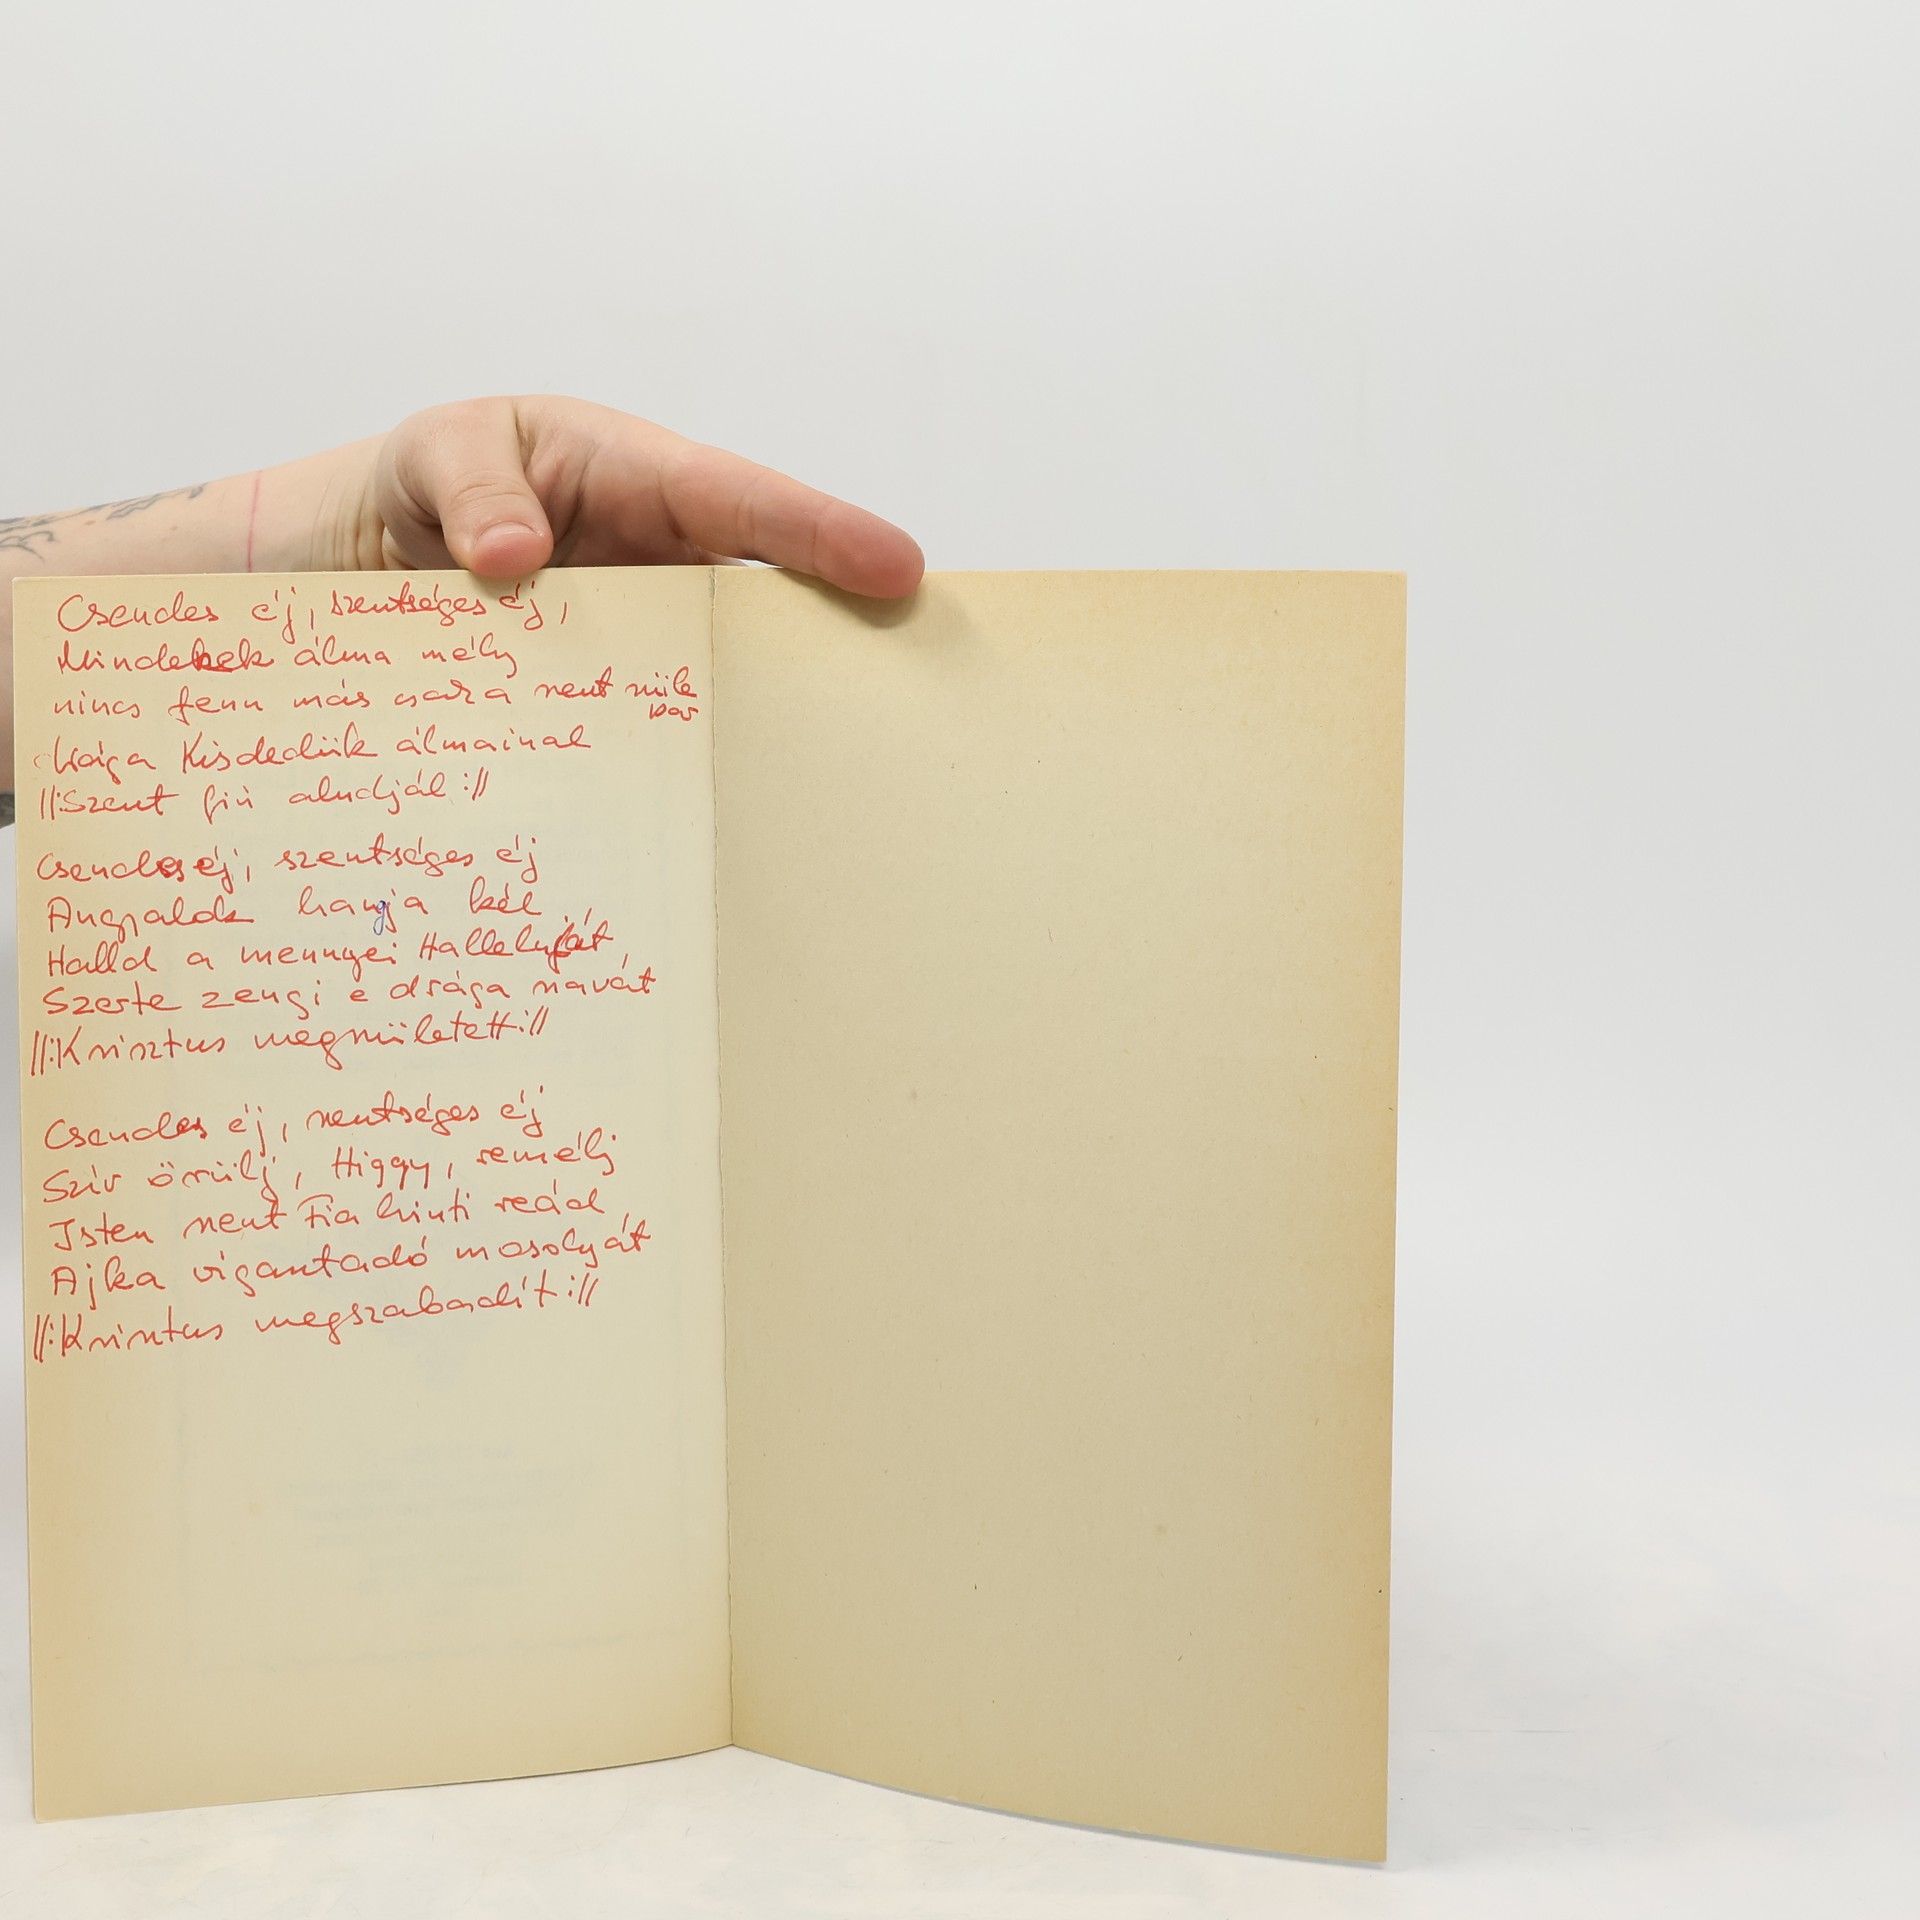 Csendes éj, szentséges éj,
Mindenek álma mély
nincs fenn más csak a szent szüle
pár
Drága Kisdedük álmainál
||:Szent fiú aludjál:||
Csendes éj, szentséges éj
Angyalok hangja kél
Halld a mennyei Halleluját,
Szerte zengi e drága szavát
||:Krisztus megszületett:||
Csendes éj, szentséges éj
Szív örülj, Higgy, remélj
Isten szent Fia hinti reád
Ajka vigasztadó mosolyát
||:Krisztus megszabadít:||